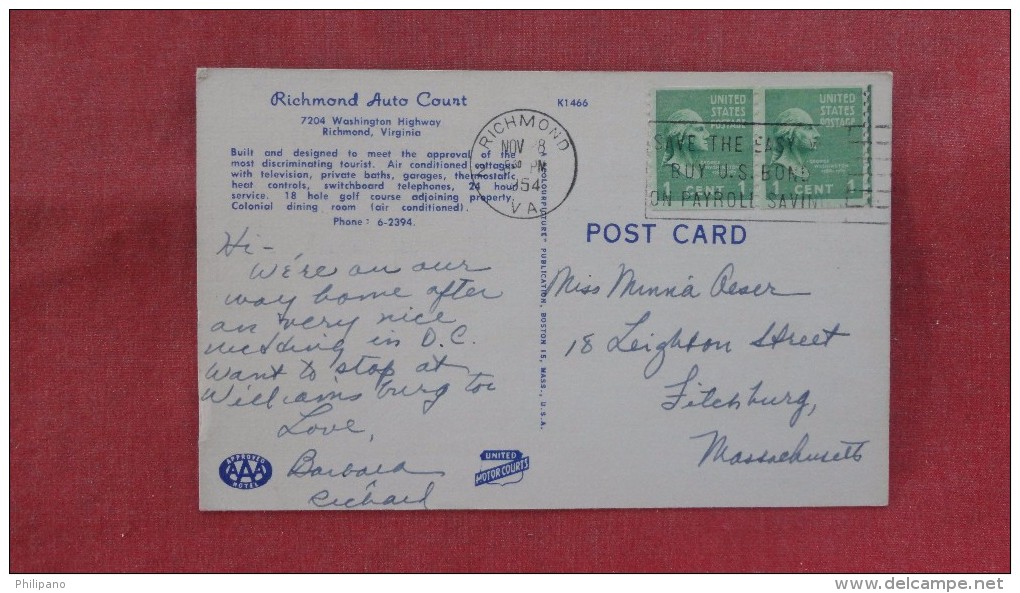 Richmond Auto Court
7204 Washington Highway
Richmond, Virginia
Built and designed to meet the approval of the
most discriminating tourist. Air conditioned cottages
with television, private baths, garages, thermostatic
heat controls, switchboard telephones, 24 hour
service. 18 hole golf course adjoining property.
Colonial dining room (air conditioned).
Phone: 6-2394.
K1466
RICHMOND
NOV 28
PM
1954
VA
UNITED
STATES
POSTAGE
1 CENT 1
UNITED
STATES
POSTAGE
1 CENT 1
SAVE THE EASY
BUY U.S. BOND
ON PAYROLL SAVIN
POST CARD
COLOURPICTURE" PUBLICATION, BOSTON 15, MASS., U.S.A.
Hi -
We're on our
way home after
an very nice
wedding in D.C.
Want to stop at
Williamsburg too
Love,
Barbara
Richard
Miss Minna Oeser
18 Leighton Street
Fitchburg,
Massachusetts
APPROVED
AAA
MOTEL
UNITED
MOTOR COURTS
Philipano
www.delcampe.net